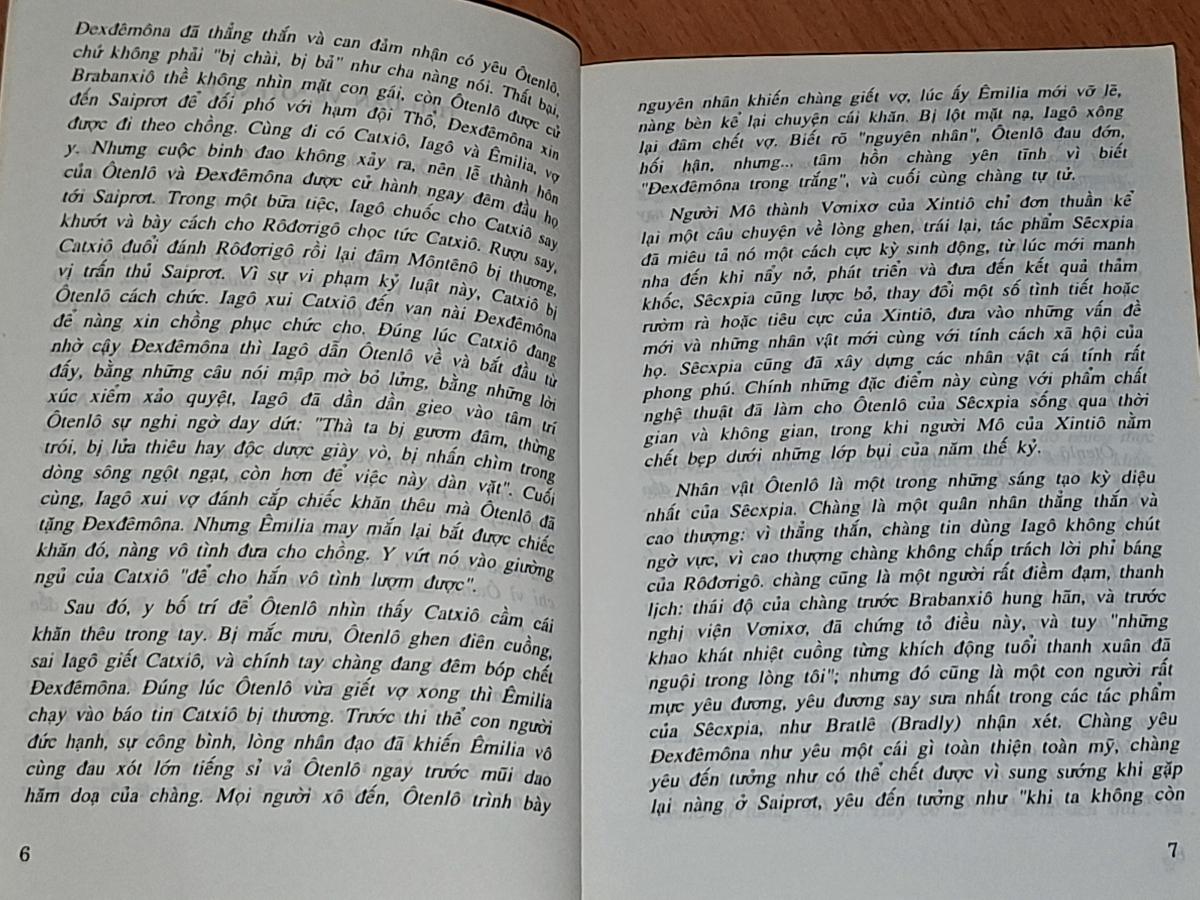 Đexđêmôna đã thẳng thắn và can đảm nhận có yêu Ôtenlô,
chứ không phải "bị chài, bị bả" như cha nàng nói. Thất bại,
Brabanxiô thề không nhìn mặt con gái, còn Ôtenlô được cử
đến Saiprơt để đối phó với hạm đội Thổ, Đexđêmôna xin
được đi theo chồng. Cùng đi có Catxiô, Iagô và Êmilia, vợ
y. Nhưng cuộc binh đao không xảy ra, nên lễ thành hôn
của Ôtenlô và Đexđêmôna được cử hành ngay đêm đầu họ
tới Saiprơt. Trong một bữa tiệc, Iagô chuốc cho Catxiô say
khướt và bày cách cho Rôđơrigô chọc tức Catxiô. Rượu say,
Catxiô đuổi đánh Rôđơrigô rồi lại đâm Môntênô bị thương,
vị trấn thủ Saiprơt. Vì sự vi phạm kỷ luật này, Catxiô bị
Ôtenlô cách chức. Iagô xui Catxiô đến van nài Đexđêmôna
để nàng xin chồng phục chức cho. Đúng lúc Catxiô đang
nhờ cậy Đexđêmôna thì Iagô dẫn Ôtenlô về và bắt đầu từ
đấy, bằng những câu nói mập mờ bỏ lửng, bằng những lời
xúc xiểm xảo quyệt, Iagô đã dần dần gieo vào tâm trí
Ôtenlô sự nghi ngờ day dứt: "Thà ta bị gươm đâm, thừng
trói, bị lửa thiêu hay độc dược giày vò, bị nhấn chìm trong
dòng sông ngột ngạt, còn hơn để việc này dàn vặt". Cuối
cùng, Iagô xui vợ đánh cắp chiếc khăn thêu mà Ôtenlô đã
tặng Đexđêmôna. Nhưng Êmilia may mắn lại bắt được chiếc
khăn đó, nàng vô tình đưa cho chồng. Y vứt nó vào giường
ngủ của Catxiô "để cho hắn vô tình lượm được".
Sau đó, y bố trí để Ôtenlô nhìn thấy Catxiô cầm cái
khăn thêu trong tay. Bị mắc mưu, Ôtenlô ghen điên cuồng,
sai Iagô giết Catxiô, và chính tay chàng đang đêm bóp chết
Đexđêmôna. Đúng lúc Ôtenlô vừa giết vợ xong thì Êmilia
chạy vào báo tin Catxiô bị thương. Trước thi thể con người
đức hạnh, sự công bình, lòng nhân đạo đã khiến Êmilia vô
cùng đau xót lớn tiếng sỉ vả Ôtenlô ngay trước mũi dao
hăm doạ của chàng. Mọi người xô đến, Ôtenlô trình bày
6
nguyên nhân khiến chàng giết vợ, lúc ấy Êmilia mới vỡ lẽ,
nàng bèn kể lại chuyện cái khăn. Bị lột mặt nạ, Iagô xông
lại đâm chết vợ. Biết rõ "nguyên nhân", Ôtenlô đau đớn,
hối hận, nhưng... tâm hồn chàng yên tĩnh vì biết
"Đexđêmôna trong trắng", và cuối cùng chàng tự tử.
Người Mô thành Vơnixơ của Xintiô chỉ đơn thuần kể
lại một câu chuyện về lòng ghen, trái lại, tác phẩm Sêcxpia
đã miêu tả nó một cách cực kỳ sinh động, từ lúc mới manh
nha đến khi nẩy nở, phát triển và đưa đến kết quả thảm
khốc, Sêcxpia cũng lược bỏ, thay đổi một số tình tiết hoặc
rườm rà hoặc tiêu cực của Xintiô, đưa vào những vấn đề
mới và những nhân vật mới cùng với tính cách xã hội của
họ. Sêcxpia cũng đã xây dựng các nhân vật cá tính rất
phong phú. Chính những đặc điểm này cùng với phẩm chất
nghệ thuật đã làm cho Ôtenlô của Sêcxpia sống qua thời
gian và không gian, trong khi người Mô của Xintiô nằm
chết bẹp dưới những lớp bụi của năm thế kỷ.
Nhân vật Ôtenlô là một trong những sáng tạo kỳ diệu
nhất của Sêcxpia. Chàng là một quân nhân thẳng thắn và
cao thượng: vì thẳng thắn, chàng tin dùng Iagô không chút
ngờ vực, vì cao thượng chàng không chấp trách lời phỉ báng
của Rôđơrigô. chàng cũng là một người rất điềm đạm, thanh
lịch: thái độ của chàng trước Brabanxiô hung hãn, và trước
nghị viện Vơnixơ, đã chứng tỏ điều này, và tuy "những
khao khát nhiệt cuồng từng khích động tuổi thanh xuân đã
nguội trong lòng tôi"; nhưng đó cũng là một con người rất
mực yêu đương, yêu đương say sưa nhất trong các tác phẩm
của Sêcxpia, như Bratlê (Bradly) nhận xét. Chàng yêu
Đexđêmôna như yêu một cái gì toàn thiện toàn mỹ, chàng
yêu đến tưởng như có thể chết được vì sung sướng khi gặp
lại nàng ở Saiprơt, yêu đến tưởng như "khi ta không còn
7